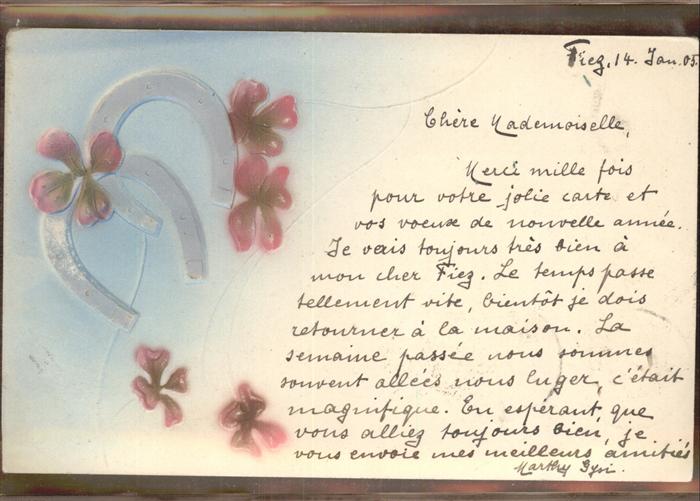 Fiez, 14. Jan. 05.
Chère Mademoiselle,
Merci mille fois
pour votre jolie carte et
vos voeux de nouvelle année.
Je vais toujours très bien à
mon cher Fiez. Le temps passe
tellement vite, bientôt je dois
retourner à la maison. La
semaine passée nous sommes
souvent allées nous luger, c'était
magnifique. En espérant, que
vous alliez toujours bien, je
vous envoie mes meilleurs amitiés
Marthy Gysi.